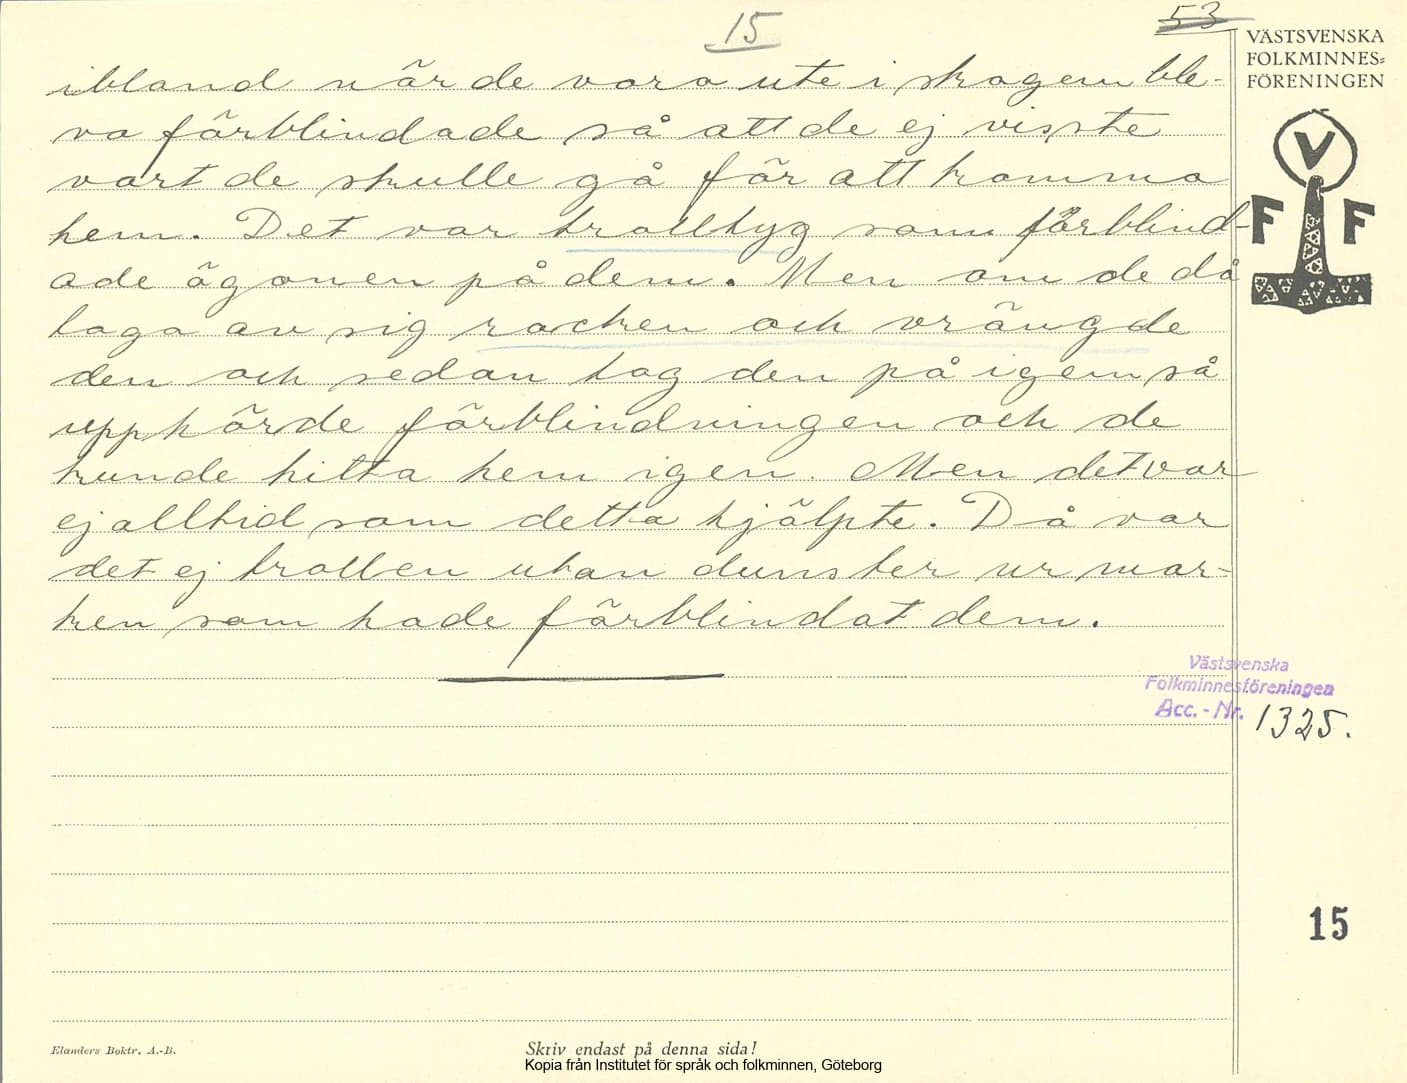 15
53
VÄSTSVENSKA
FOLKMINNES=
FÖRENINGEN
V
F F
ibland när de voro ute i skogen ble-
vo förblindade så att de ej visste
vart de skulle gå för att komma
hem. Det var trolltyg som förblind-
ade ögonen på dem. Men om de då
toga av sig rocken och vrängde
den och sedan tog den på igen så
upphörde förblindningen och de
kunde hitta hem igen. Men det var
ej alltid som detta hjälpte. Då var
det ej trollen utan dunster ur mar-
ken som hade förblindat dem.
Västsvenska
Folkminnesföreningen
Acc. - Nr. 1325.
15
Elanders Boktr. A.-B.
Skriv endast på denna sida!
Kopia från Institutet för språk och folkminnen, Göteborg